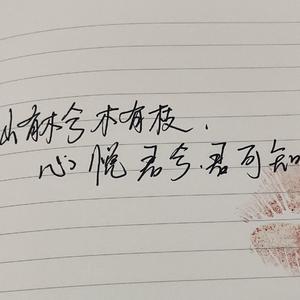 山有木兮木有枝.
心悦君兮.君可知